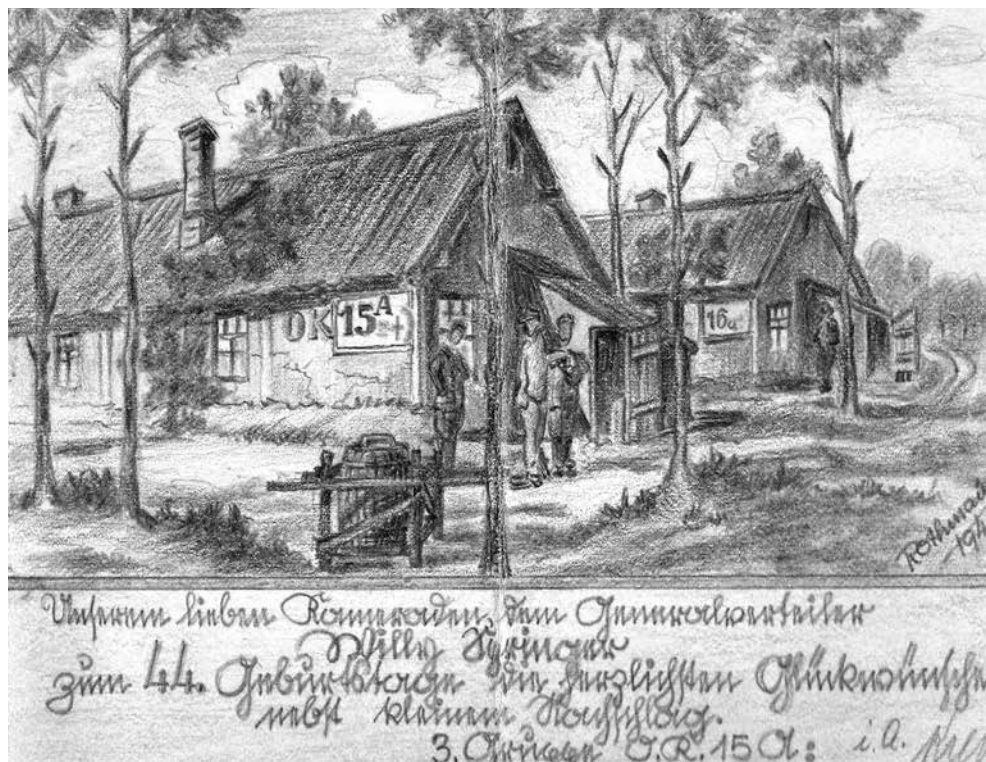 OK 15A
16a
Unserem lieben Kameraden, dem Generalverteiler
Willy Springer
zum 44. Geburtstage die herzlichsten Glückwünsche
nebst kleinem Nachschlag.
3. Gruppe O.K. 15 A: i.A.